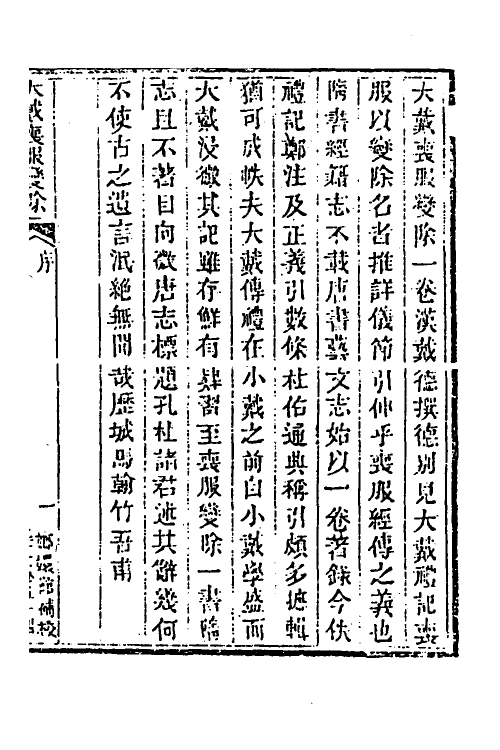 大戴喪服變除一卷漢戴德撰德別見大戴禮記喪
服以變除名者推詳儀節引伸乎喪服經傳之義也
隋書經籍志不載唐書藝文志始以一卷著錄今佚
禮記鄭注及正義引數條杜佑通典稱引頗多摭輯
猶可成帙夫大戴傳禮在小戴之前自小戴學盛而
大戴浸微其記雖存鮮有肄習至喪服變除一書隋
志且不著目向微唐志標題孔杜諸君述其辭幾何
不使古之遺言泯絕無聞哉歷城馬翰竹吾甫
大戴喪服變除
序
一
嫏嬛館補校